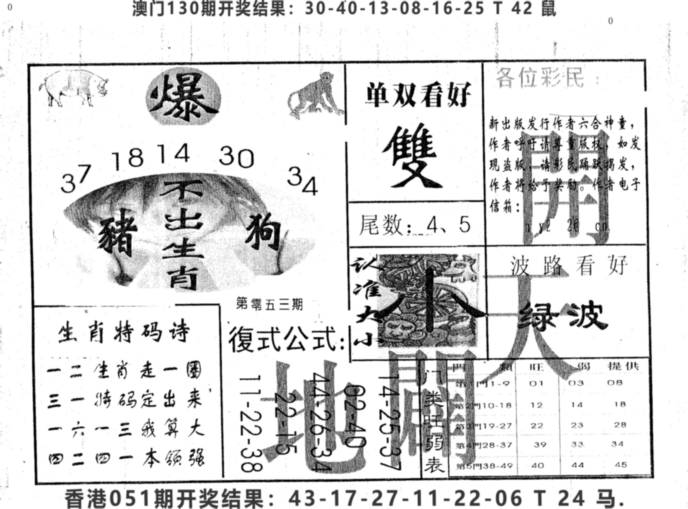 澳门130期开奖结果：30-40-13-08-16-25 T 42 鼠
爆
37 18 14 30 34
不出生肖
豬 狗
单双看好
雙
尾数：4、5
各位彩民：
新出版发行作者六合神童，
作者呼吁请尊重版权，如发
现盗版，请彩民踊跃揭发，
作者将给予奖励。作者电子
信箱：
开天闢地
认准大小
小
波路看好
绿波
第零五三期
復式公式：
11-22-38
22-15
44-26-34
02-40
14-25-37
生肖特码诗
一二生肖走一圈
三一特码定出来
一六一三我算大
四二四一本领强
门类旺弱表
門 類 旺 弱 提供
第1門1-9 01 03 08
第2門10-18 12 14 18
第3門19-27 22 23 28
第4門28-37 39 33 34
第5門38-49 40 44 45
香港051期开奖结果：43-17-27-11-22-06 T 24 马.